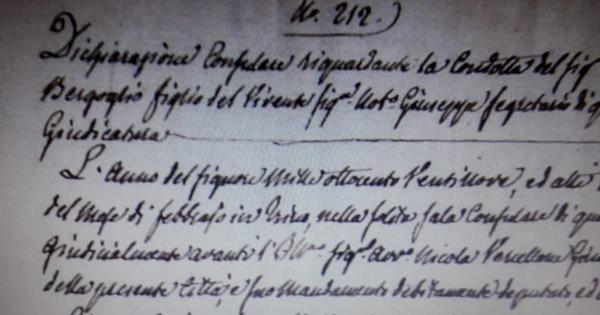 No. 212.)
Dichiarazione Consolare riguardante la Condotta del sig
Bergoglio figlio del Vivente sig.r Not.o Giuseppe segretario di q
Giudicatura
L'anno del signore mille ottocento venti nove, ed alli
del mese di febbrajo in, nella solita sala Consolare di que
giudicialmente avanti l' Ill.mo sig.r Avv.o Nicola Vercellone Giu
della presente Città, e suo Mandamento debitamente deputato, ed